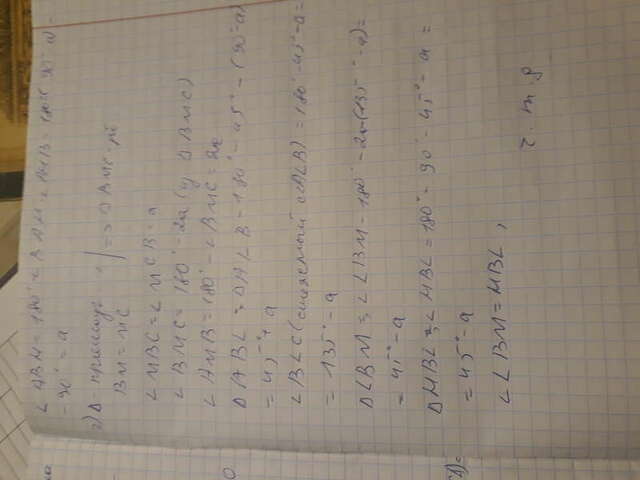 ∠ABH = 180° - ∠BAH - ∠AHB = 180° - (90° - a) -
- 90° = a
г) Δ - прямоуг. | => ΔBMC - рб
BM = MC
∠MBC = ∠MCB = a
∠BMC = 180° - 2a (из ΔBMC)
∠AMB = 180° - ∠BMC = 2a
ΔABL: ∠ALB = 180° - 45° - (90° - a)
= 45° + a
∠BLC (смежный с ∠ALB) = 180° - 45° - a =
= 135° - a
ΔLBM: ∠LBM = 180° - 2a - (135° - a) =
= 45° - a
ΔHBL: ∠HBL = 180° - 90° - 45° - a =
= 45° - a
∠LBM = HBL,
ч. т. д